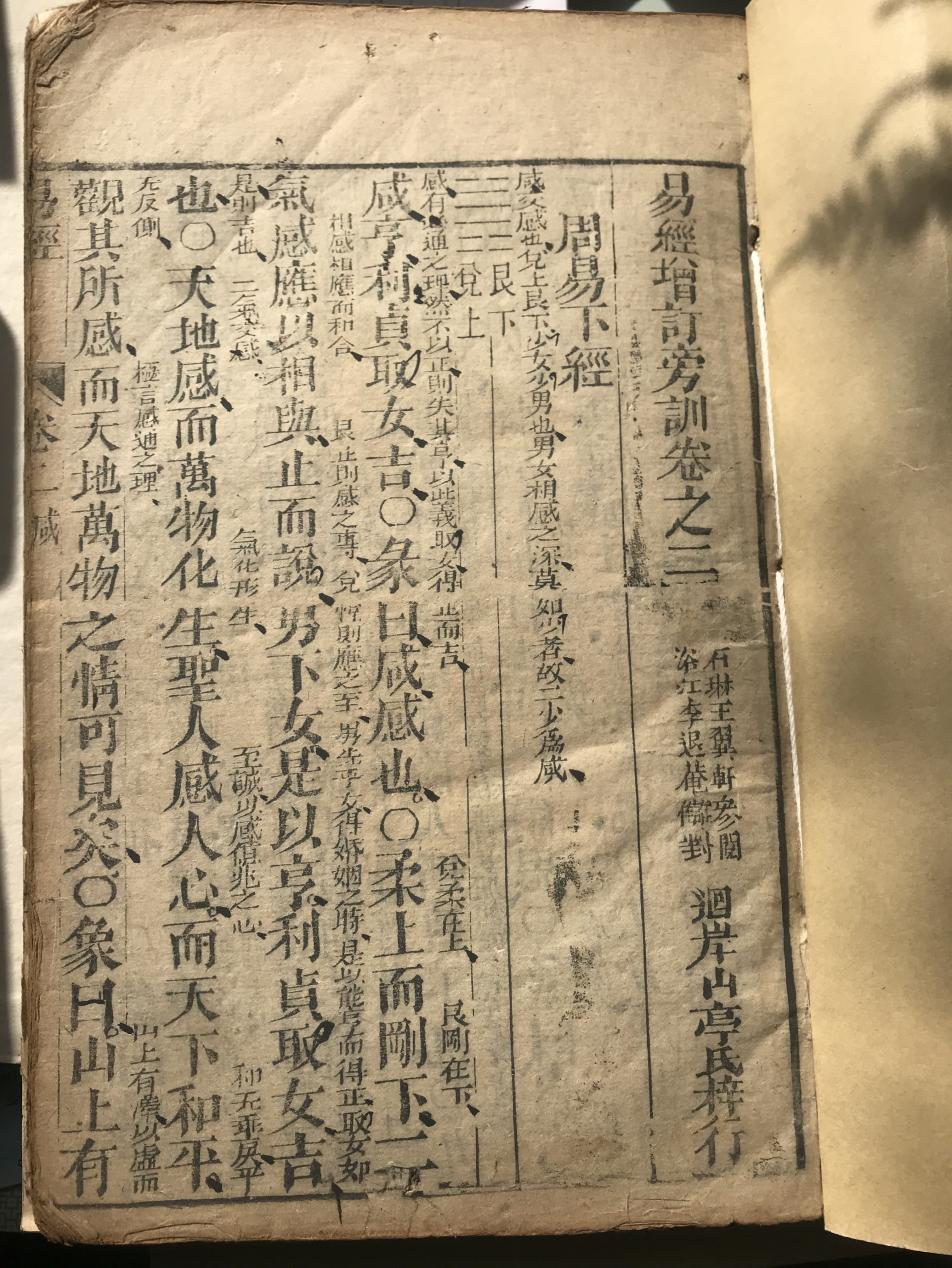 易經增訂旁訓卷之二
石琳王翼軒參閱
浴江李退菴讐對
迴岸山亭氏梓行
周易下經
咸交感也兌上艮下少女少男也男女相感之深莫如少者故二少為咸
艮下
兌上
感有必通之理然不以正則失其亨以此義取女得正而吉
兌柔在上
艮剛在下
咸亨利貞取女吉〇彖曰咸感也〇柔上而剛下二
相感相應而和合
艮止則感之專
兌悅則應之至
男先乎女得婚姻之時
是以能亨而得正取女如
氣感應以相與止而說男下女是以亨利貞取女吉
是則吉也
二氣交感
氣化形生
至誠以感億兆之心
和无乖戾平
也〇天地感而萬物化生聖人感人心而天下和平
无反側
極言感通之理
山上有澤以虛而
觀其所感而天地萬物之情可見矣〇象曰山上有
易經
卷二 咸